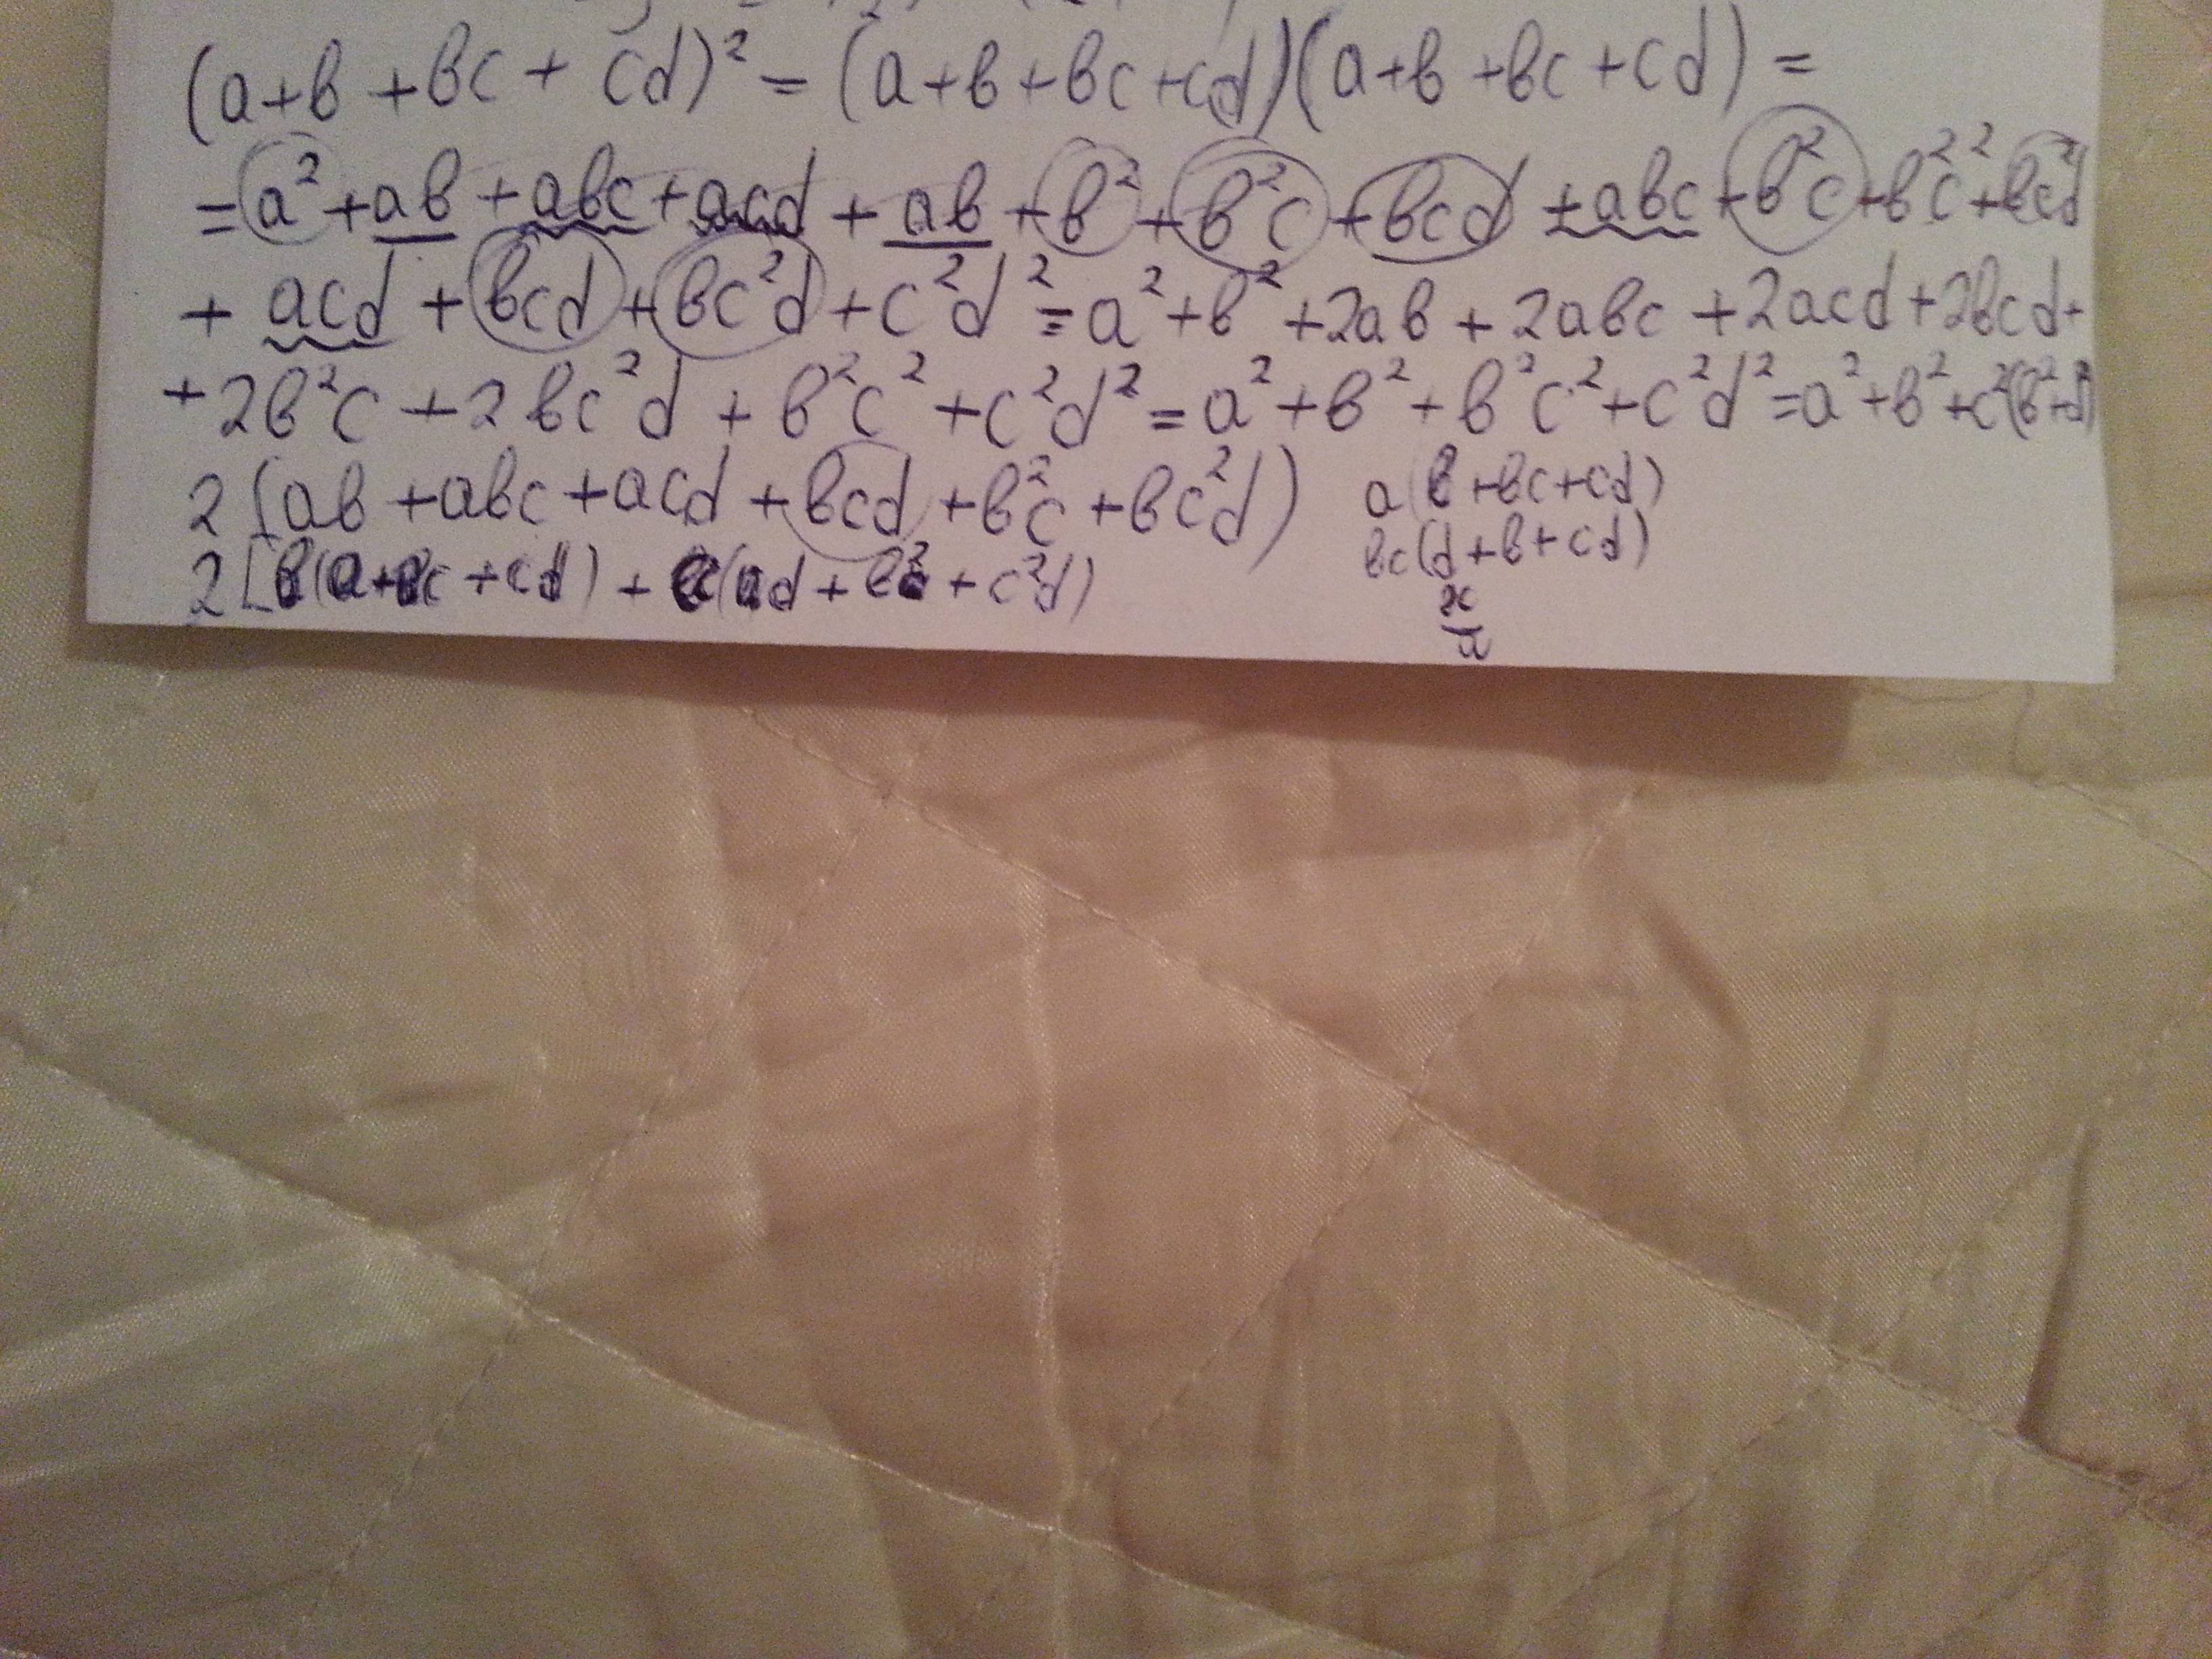 (a+b+bc+cd)² = (a+b+bc+cd)(a+b+bc+cd) =
= a² + ab + abc + acd + ab + b² + b²c + bcd + abc + b²c + b²c² + bc²d
+ acd + bcd + bc²d + c²d² = a² + b² + 2ab + 2abc + 2acd + 2bcd +
+ 2b²c + 2bc²d + b²c² + c²d² = a² + b² + b²c² + c²d² = a² + b² + c²(b²+d²)
2 (ab + abc + acd + bcd + b²c + bc²d)
a(b+bc+cd)
bc(d+b+cd)
2[b(a+bc+cd) +